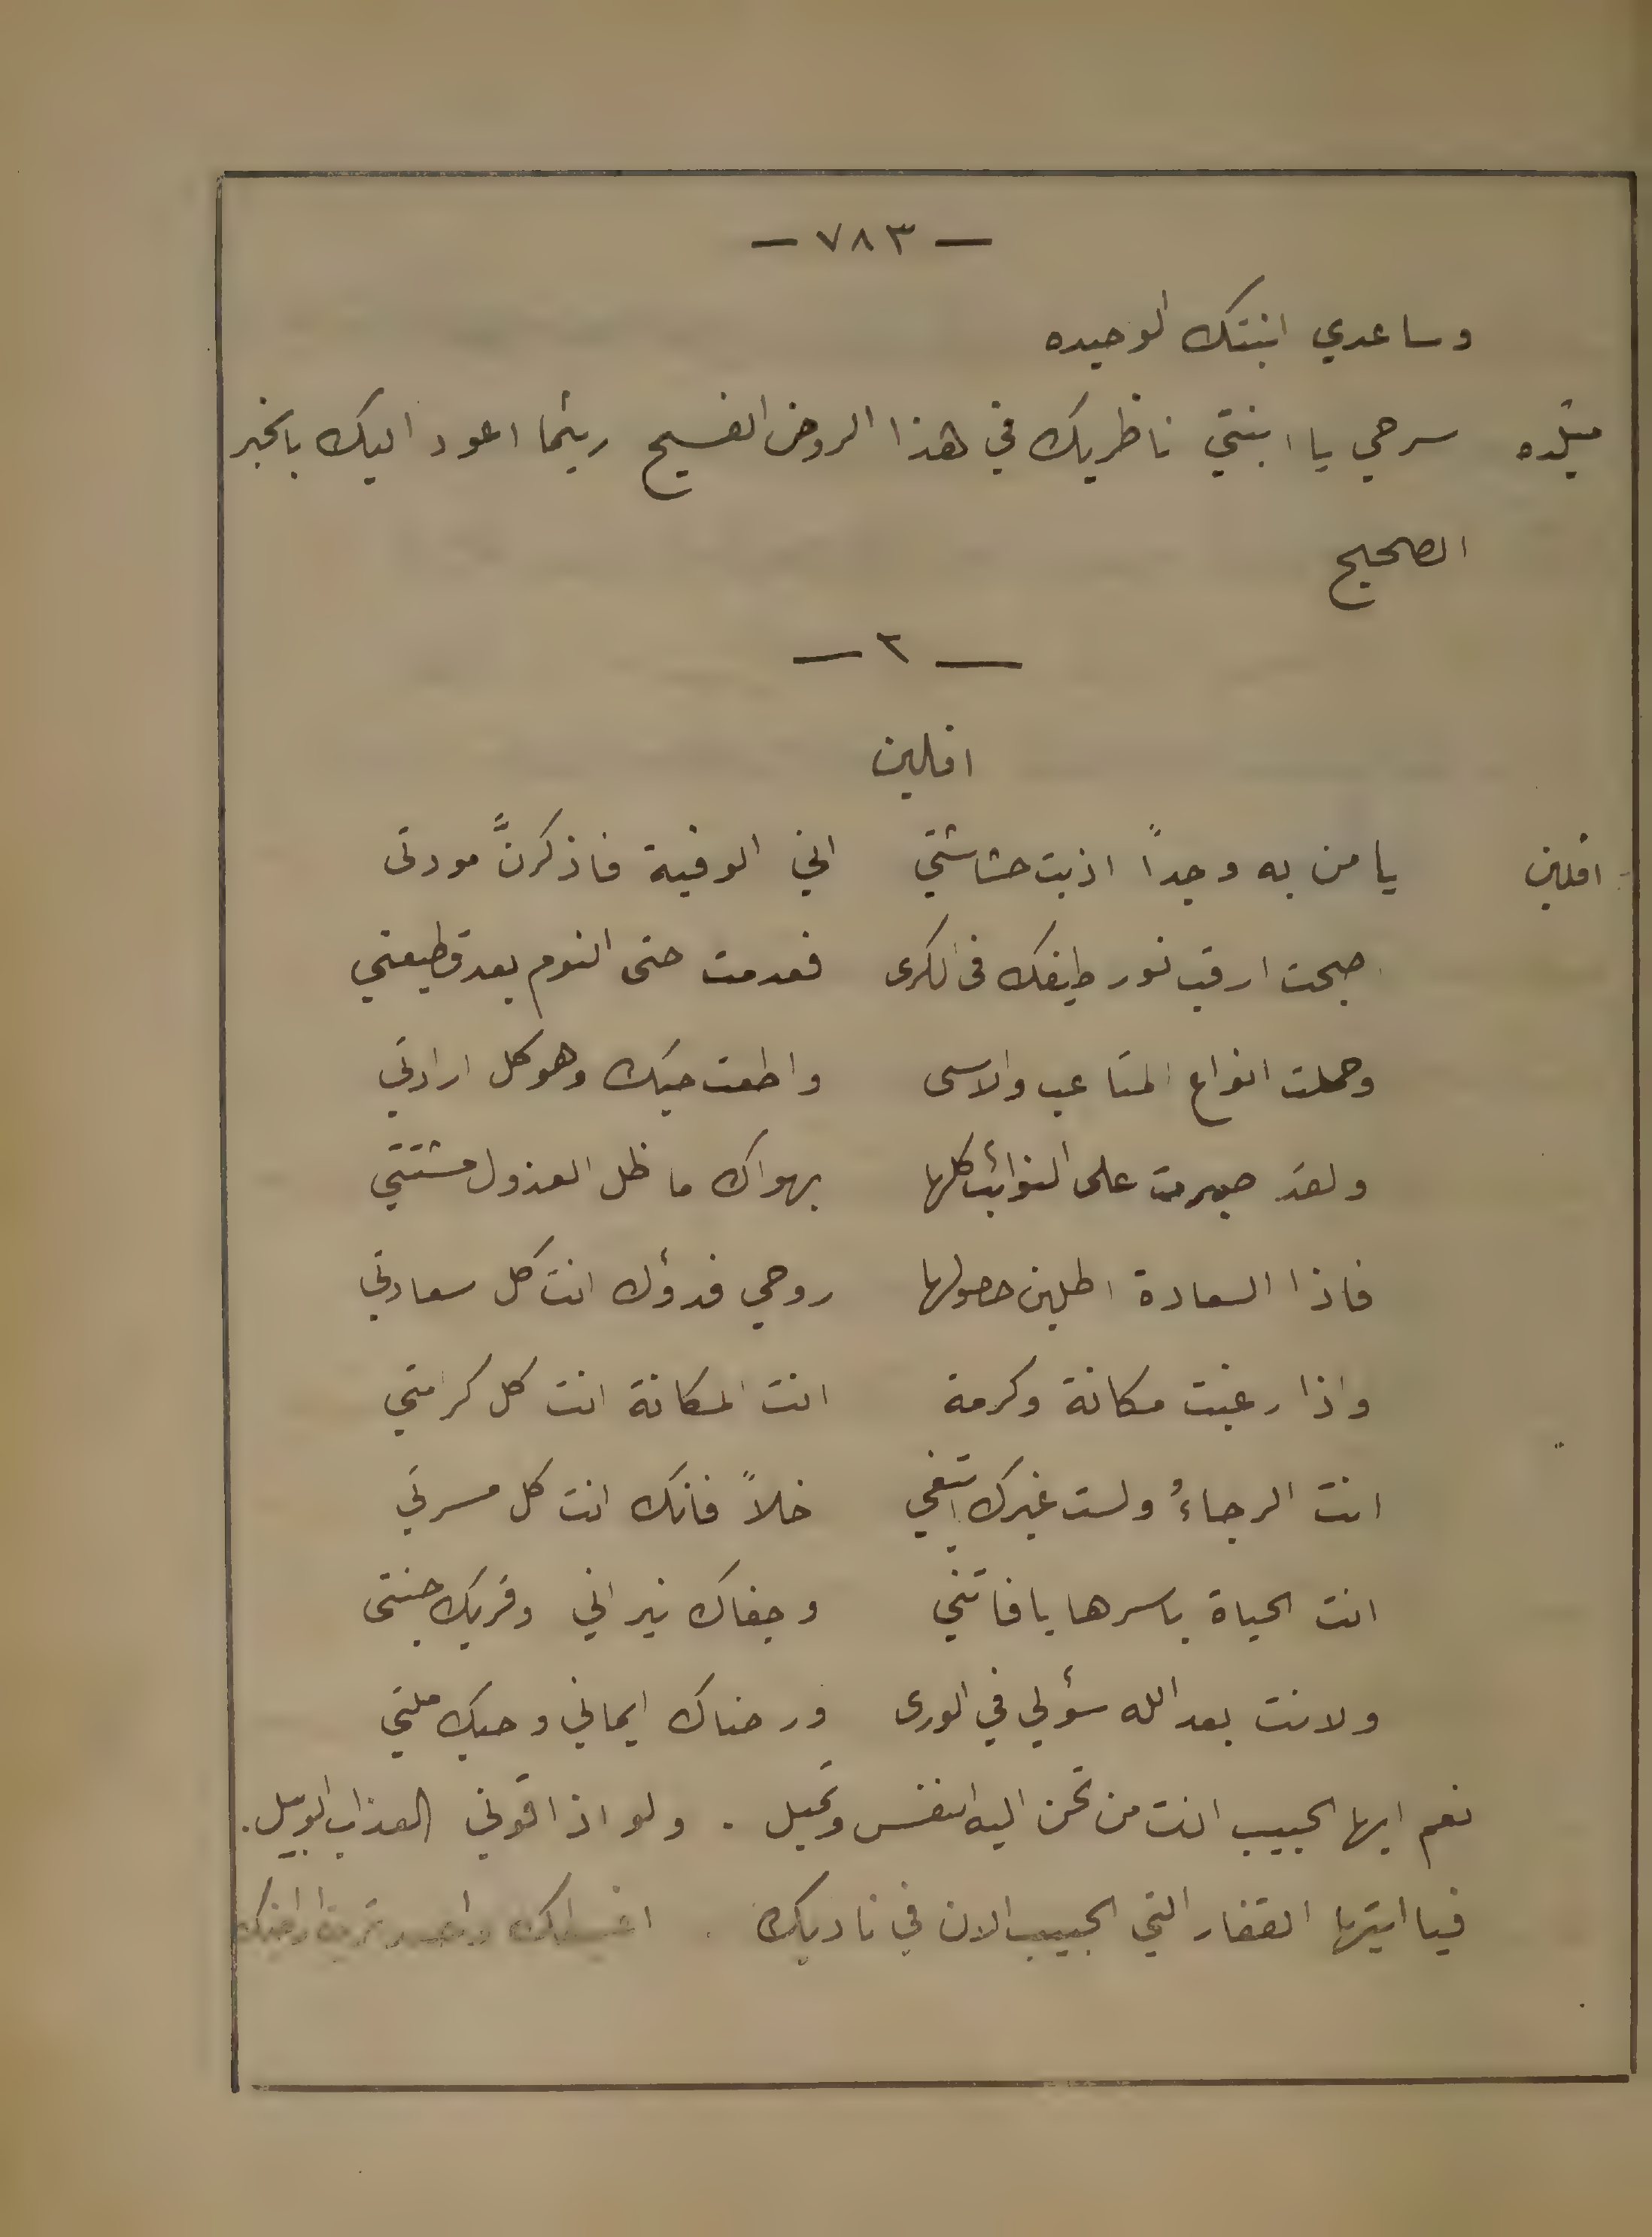 — ٧٨٣ —
وساعدي ابنتك الوحيده
متيلده سرحي يا ابنتي ناظريك في هذا الروض الفسيح ريثما اعود اليك بالخبر
الصحيح
— ٢ —
افلين
افلين يا من به وجداً اذبت حشاشتي اني الوفية فاذكرنَّ مودتى
صبحت ارقب نور طيفك فى الكرى فعدمت حتى النوم بعد قطيعتي
وحملت انواع المتاعب والاسى واطعت حبك وهو كل ارادتي
ولقد صبرت على النوائب كلها بهواك ما ظل العذول مشتتي
فاذا السعادة اطلبن حصولها روحي فدؤك انت كل سعادتي
واذا رغبت مكانة وكرمة انت المكانة انت كل كرامتي
انت الرجاءُ ولست غيرك ابتغي خلاً فانك انت كل مسرتي
انت الحياة باسرها يا فاتني وجفاك نيراني وقربك جنتى
ولانت بعد الله سؤلي في الورى ورضاك ايماني وحبك ملتي
نعم ايها الحبيب انت من تحن اليه النفس وتميل . ولو اذاقوني العذاب الوبيل.
فيا ايتها القفار التي الحبيب الان في ناديك .